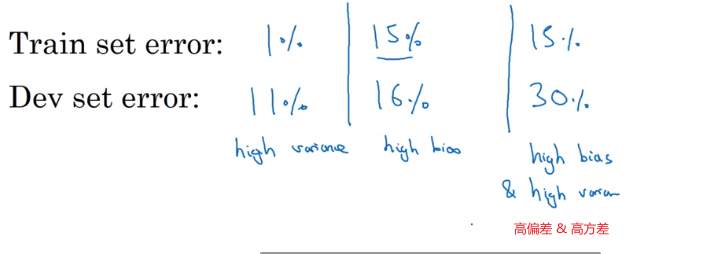 Train set error: 1% 15% 15%
Dev set error: 11% 16% 30%
high variance high bias high bias
& high varian
高偏差 & 高方差